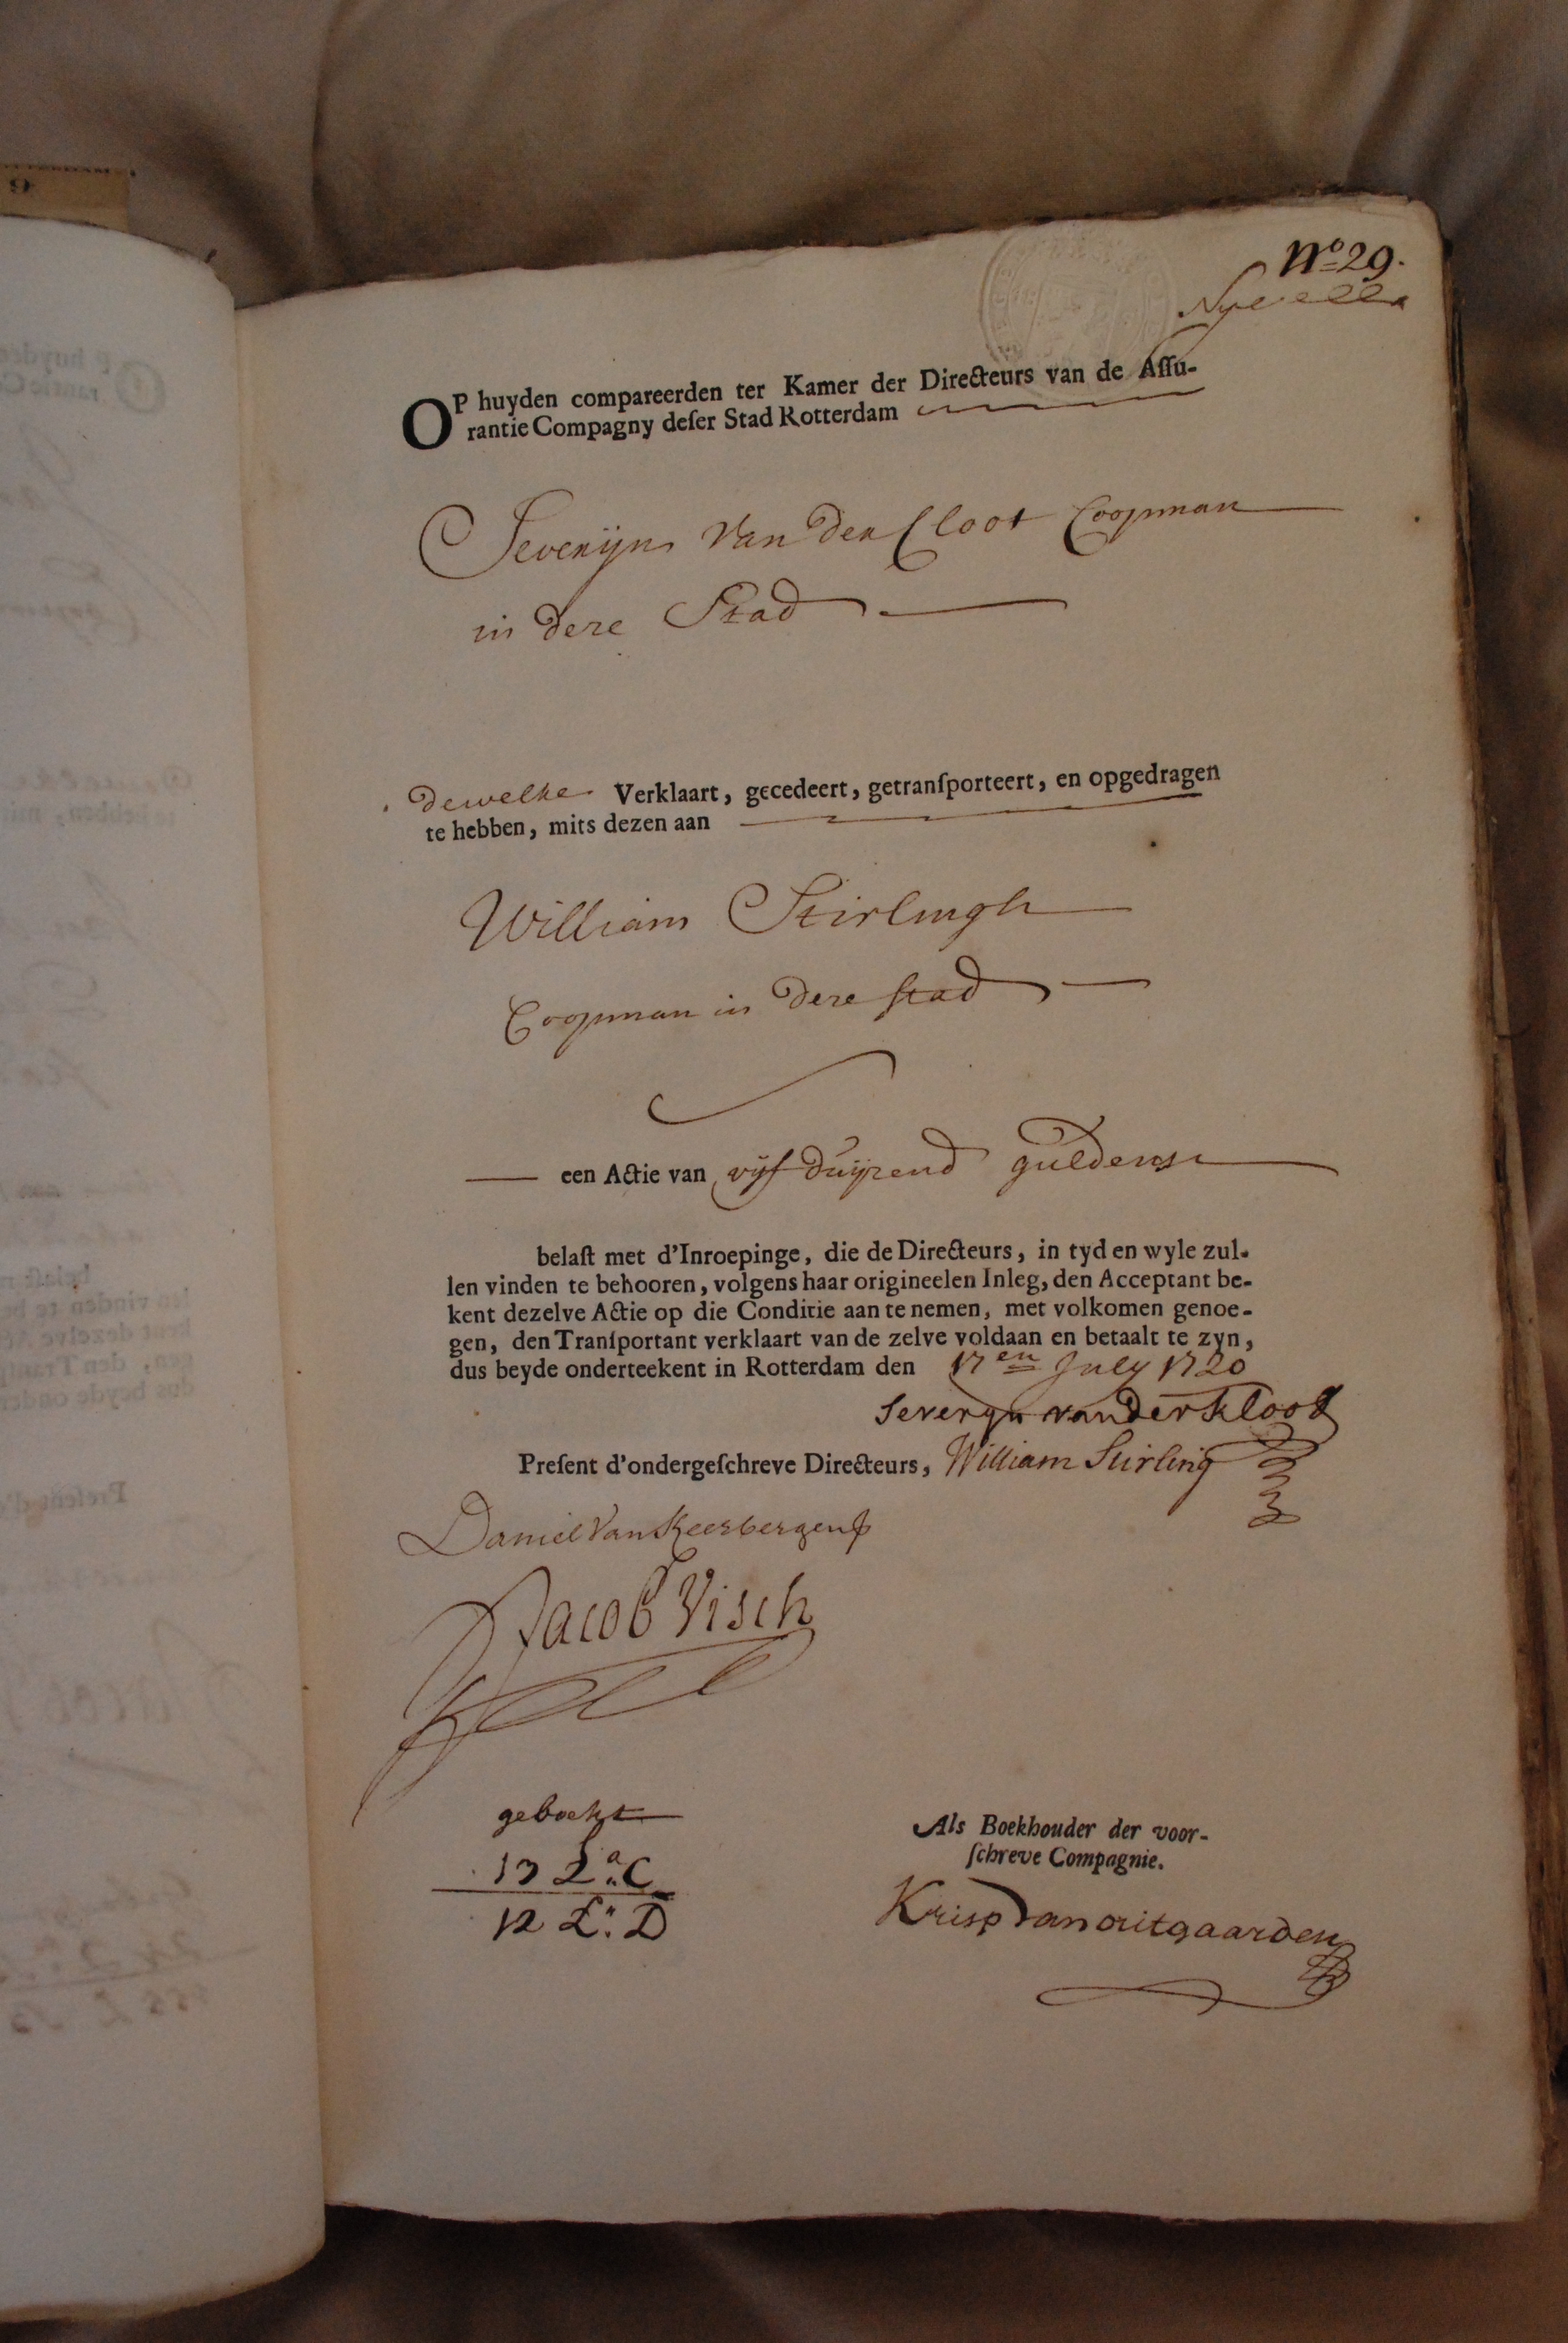 No 29.
OP huyden compareerden ter Kamer der Directeurs van de Assu-
rantie Compagny deser Stad Rotterdam
Severijn Van Der Cloot Coopman
in deze Stad
dewelke Verklaart, gecedeert, getransporteert, en opgedragen
te hebben, mits dezen aan
William Stirlingh
Coopman in deze stad
een Actie van vijf duijzend guldens
belast met d'Inroepinge, die de Directeurs, in tyd en wyle zul-
len vinden te behooren, volgens haar origineelen Inleg, den Acceptant be-
kent dezelve Actie op die Conditie aan te nemen, met volkomen genoe-
gen, den Transportant verklaart van de zelve voldaan en betaalt te zyn,
dus beyde onderteekent in Rotterdam den 17en July 1720
Severyn vander Kloot
Present d'ondergeschreve Directeurs, William Stirling
Daniel Van Keersbergen
Jacob Visch
geboekt
13 La C
12 La D
Als Boekhouder der voor-
schreve Compagnie.
Krisp Van uitgaarden